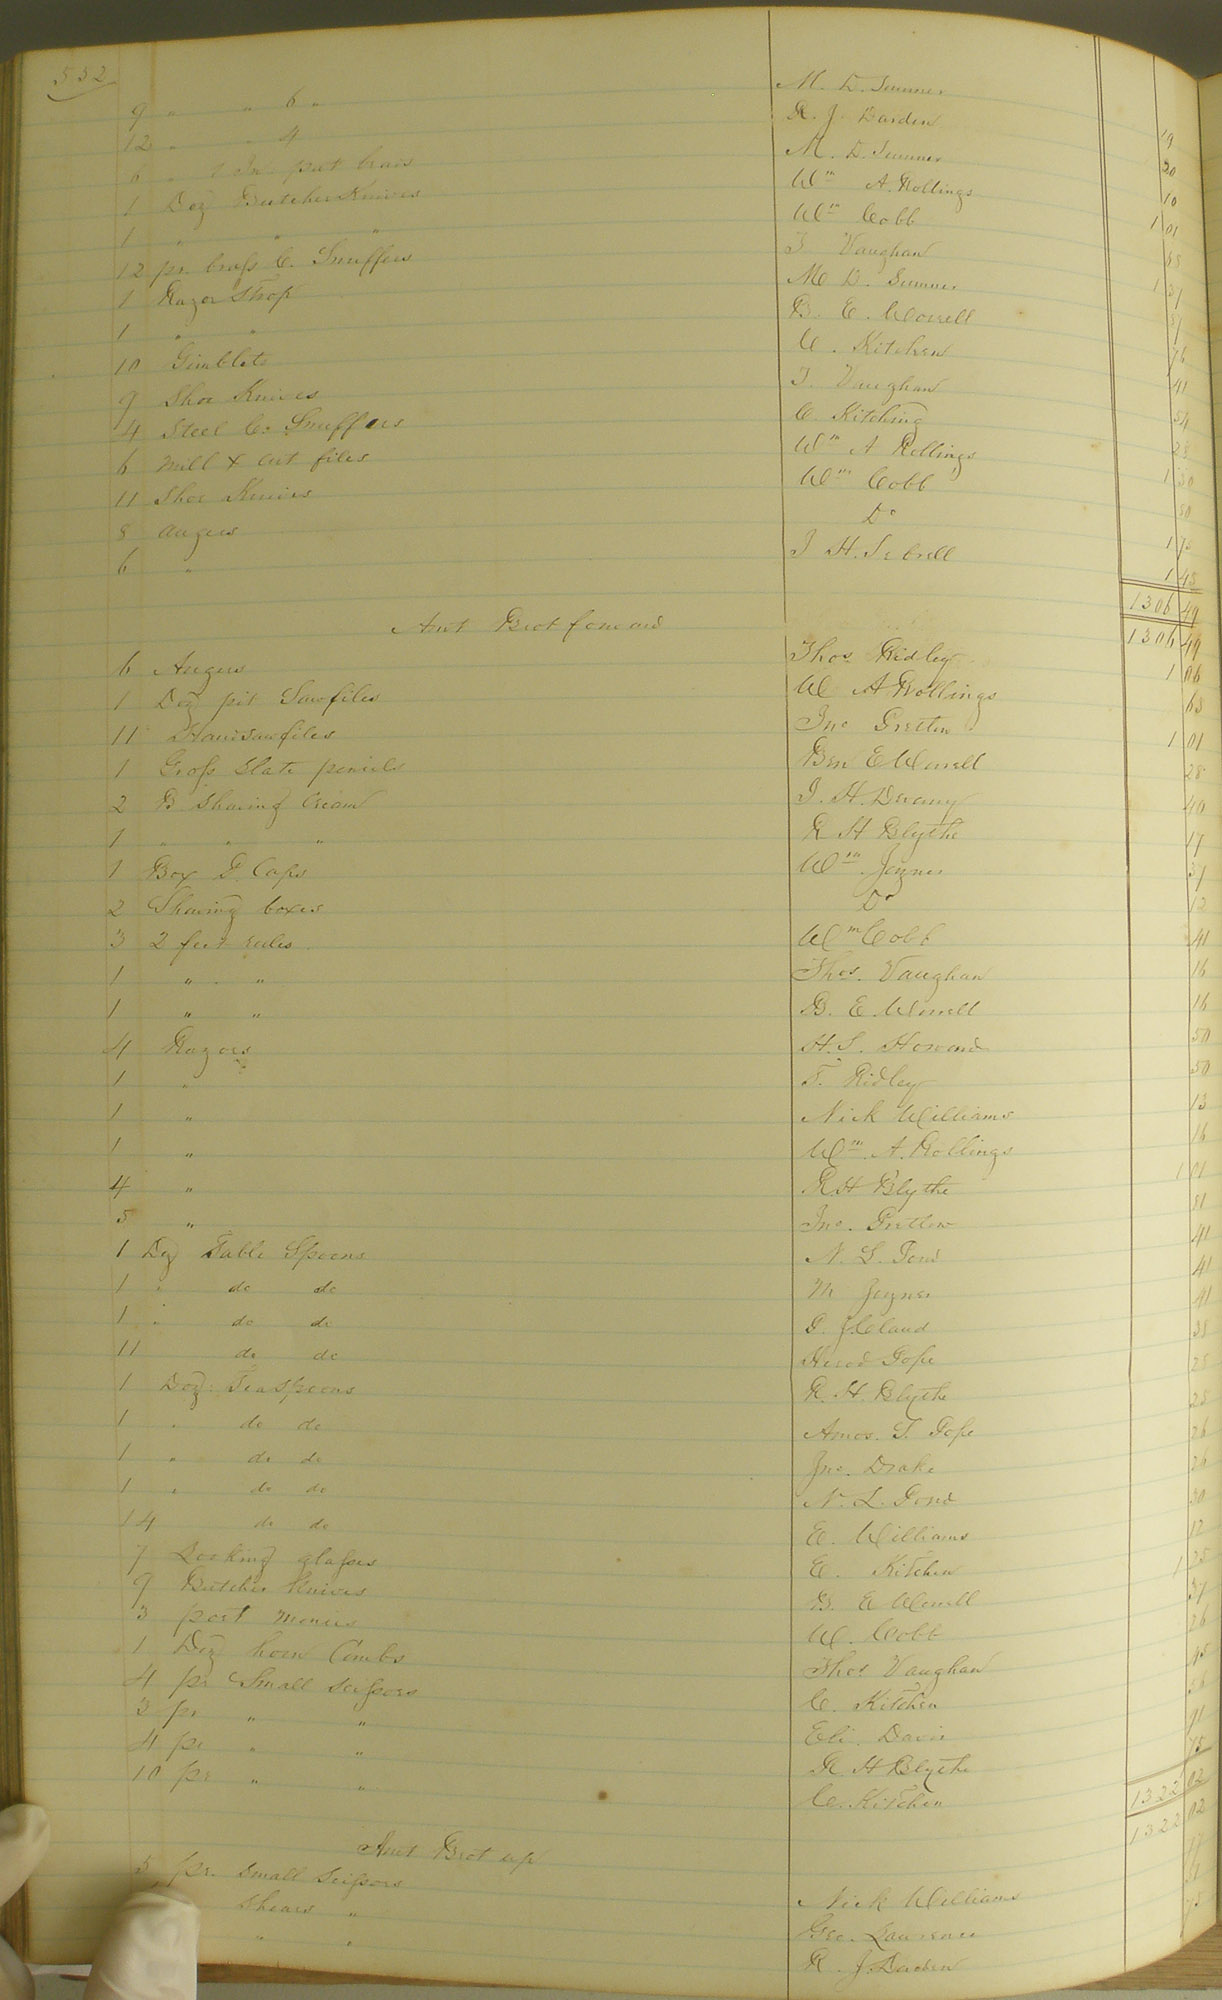 532
9 " " 6 " M. D. Sumner
12 " " 4 R. J. Darden 19
6 " 1 In. put M. D. Sumner 20
1 Doz Butcher Knives Wm A. Rollings 10
1 " " " Wm Cobb 1 01
12 pr. brass C. Snuffers T Vaughan 68
1 Razor Strop M D. Sumner 1 37
1 " " B. E. Worrell
10 Gimblets C. Kitchen
9 Shoe Knives T. Vaughan 41
4 Steel C. Snuffers C. Kitching 54
6 Mill X cut files Wm A Rollings 28
11 Shoe Knives Wm Cobb 1 30
8 augers Do 50
6 " J H. Sebrell 1 75
1 45
1306 49
Amt Brot forward 1306 49
6 Augers Thos Ridley 1 06
1 Doz pit Saw files W A Rollings 63
11 Handsaw files Jno Gretter 1 01
1 Gross Slate pencils Ben E Worrell 28
2 B Shaving Cream J. H. 40
1 " " " R H Blythe 17
1 Box G. Caps Wm Joyner 37
2 Shaving boxes Do 12
3 2 feet rules Wm Cobb 41
1 " " Thos. Vaughan 16
1 " " B. E. Worrell 16
4 Razors H. S. Howard 50
1 " T. Ridley 50
1 " Nick Williams 13
1 " Wm. A. Rollings 16
4 " R H Blythe 1 01
5 " Jno. 81
1 Doz Table Spoons N. L. Pond 41
1 " do do M Joyner 41
1 " do do G. J. Cland 41
11 do do Herod Pope 38
1 Doz. Tea Spoons R. H. Blythe 25
1 " do do Amos. T. Pope 25
1 " do do Jno. Drake 26
1 " do do N. L. Pond 26
14 do do E. Williams 30
7 Looking glasses E. Kitchen 12
9 Butcher Knives B. E Worrell 1 25
3 port Monies W. Cobb 37
1 Doz horn Combs Thos Vaughan 26
4 pr Small Scissors C. Kitchen 45
3 pr " " Eli. Davis 36
4 pr " " R H Blythe 91
10 pr " " C. Kitchen 75
1322 02
Amt Brot up 1322 02
5 pr. Small Scissors Nick Williams
Shears " Geo. Lawrence
" " R. J. Darden 75